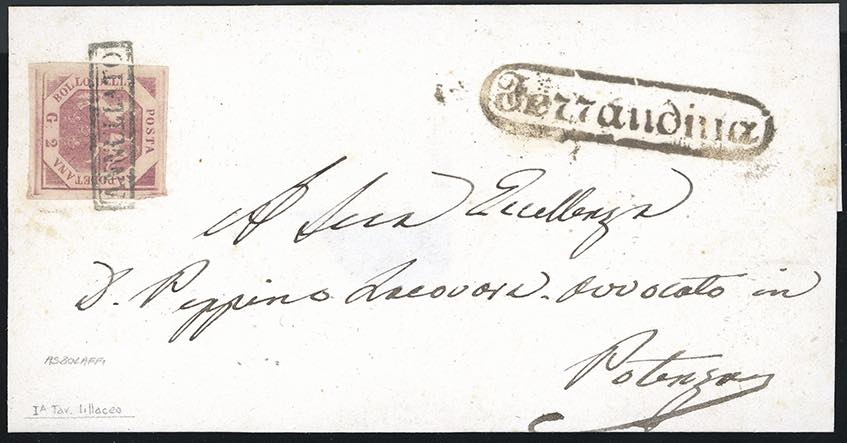 BOLLO DELLA
POSTA
NAPOLETANA
G 2
ANNULLATO
Ferrandina
A Sua Eccellenza
D. Peppino Lacovara. Avvocato in
Potenza
ASBOLAFFI
Iª Tav. lillaceo